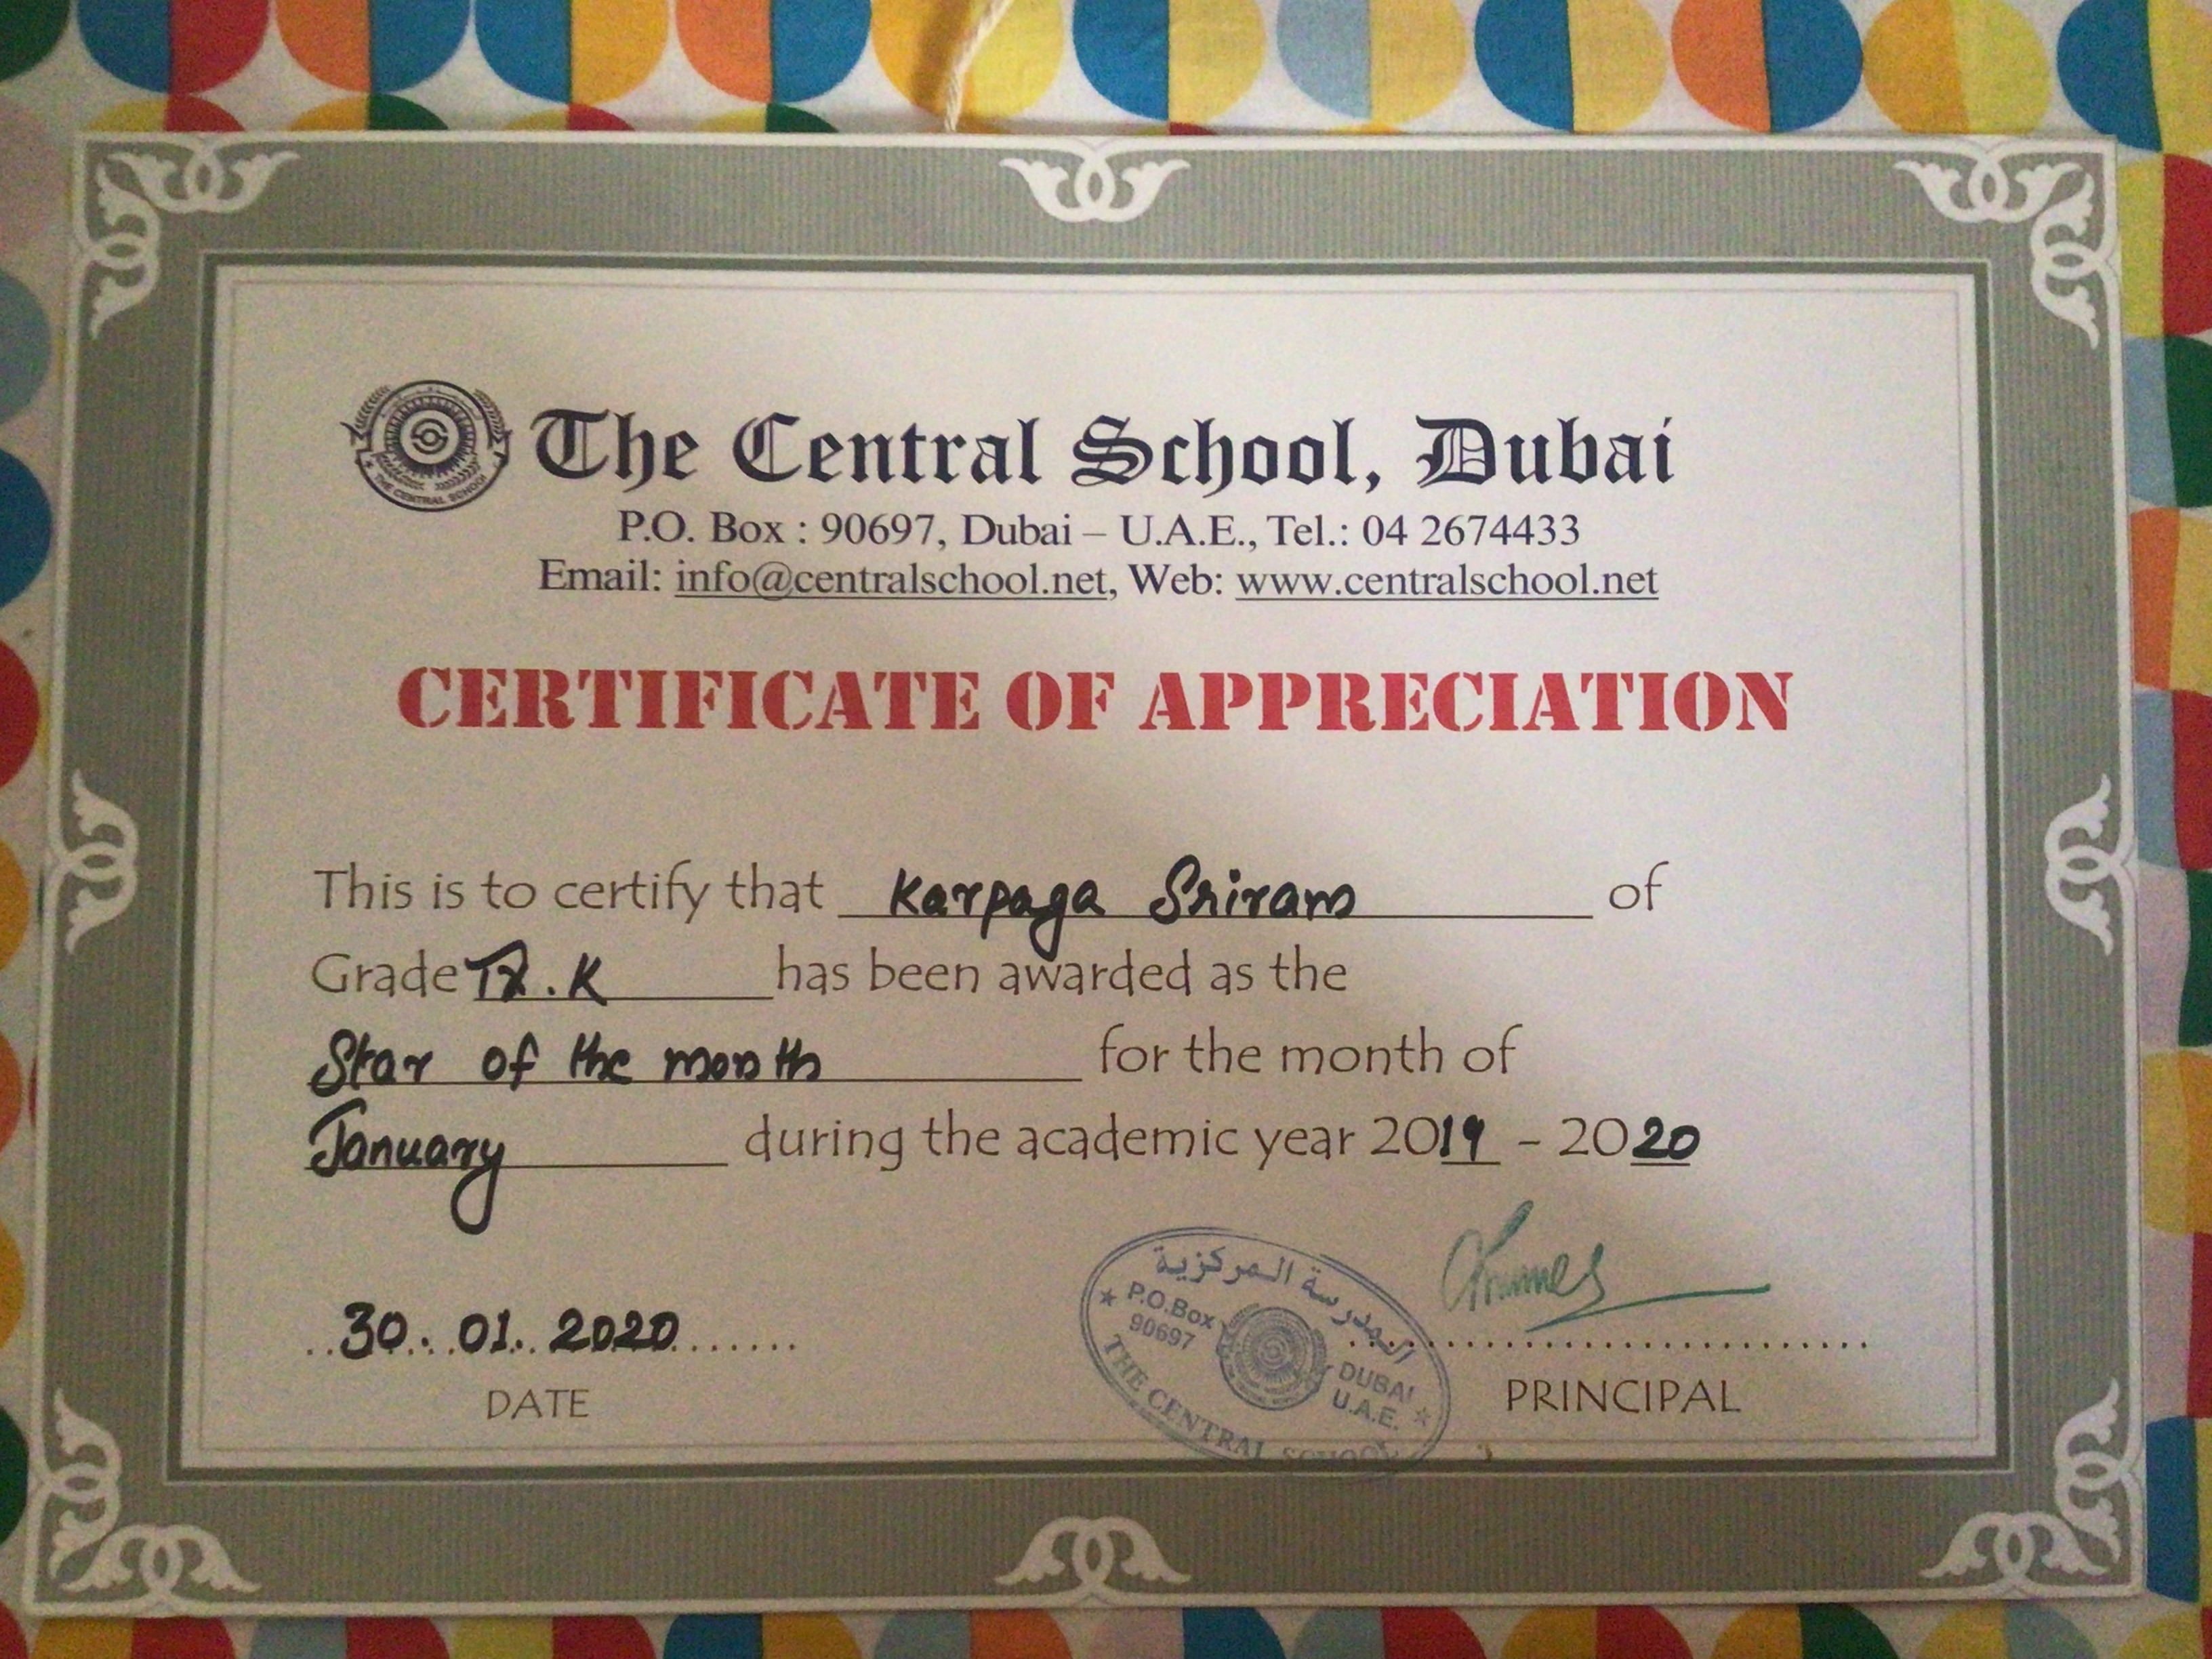 The Central School, Dubai
P.O. Box : 90697, Dubai – U.A.E., Tel.: 04 2674433
Email: info@centralschool.net, Web: www.centralschool.net
CERTIFICATE OF APPRECIATION
This is to certify that Karpaga Sriram of
Grade IX.K has been awarded as the
Star of the month for the month of
January during the academic year 2019 - 2020
30. 01. 2020
DATE
المدرسة المركزية
P.O.Box
90697
DUBAI
U.A.E.
THE CENTRAL SCHOOL
PRINCIPAL
THE CENTRAL SCHOOL